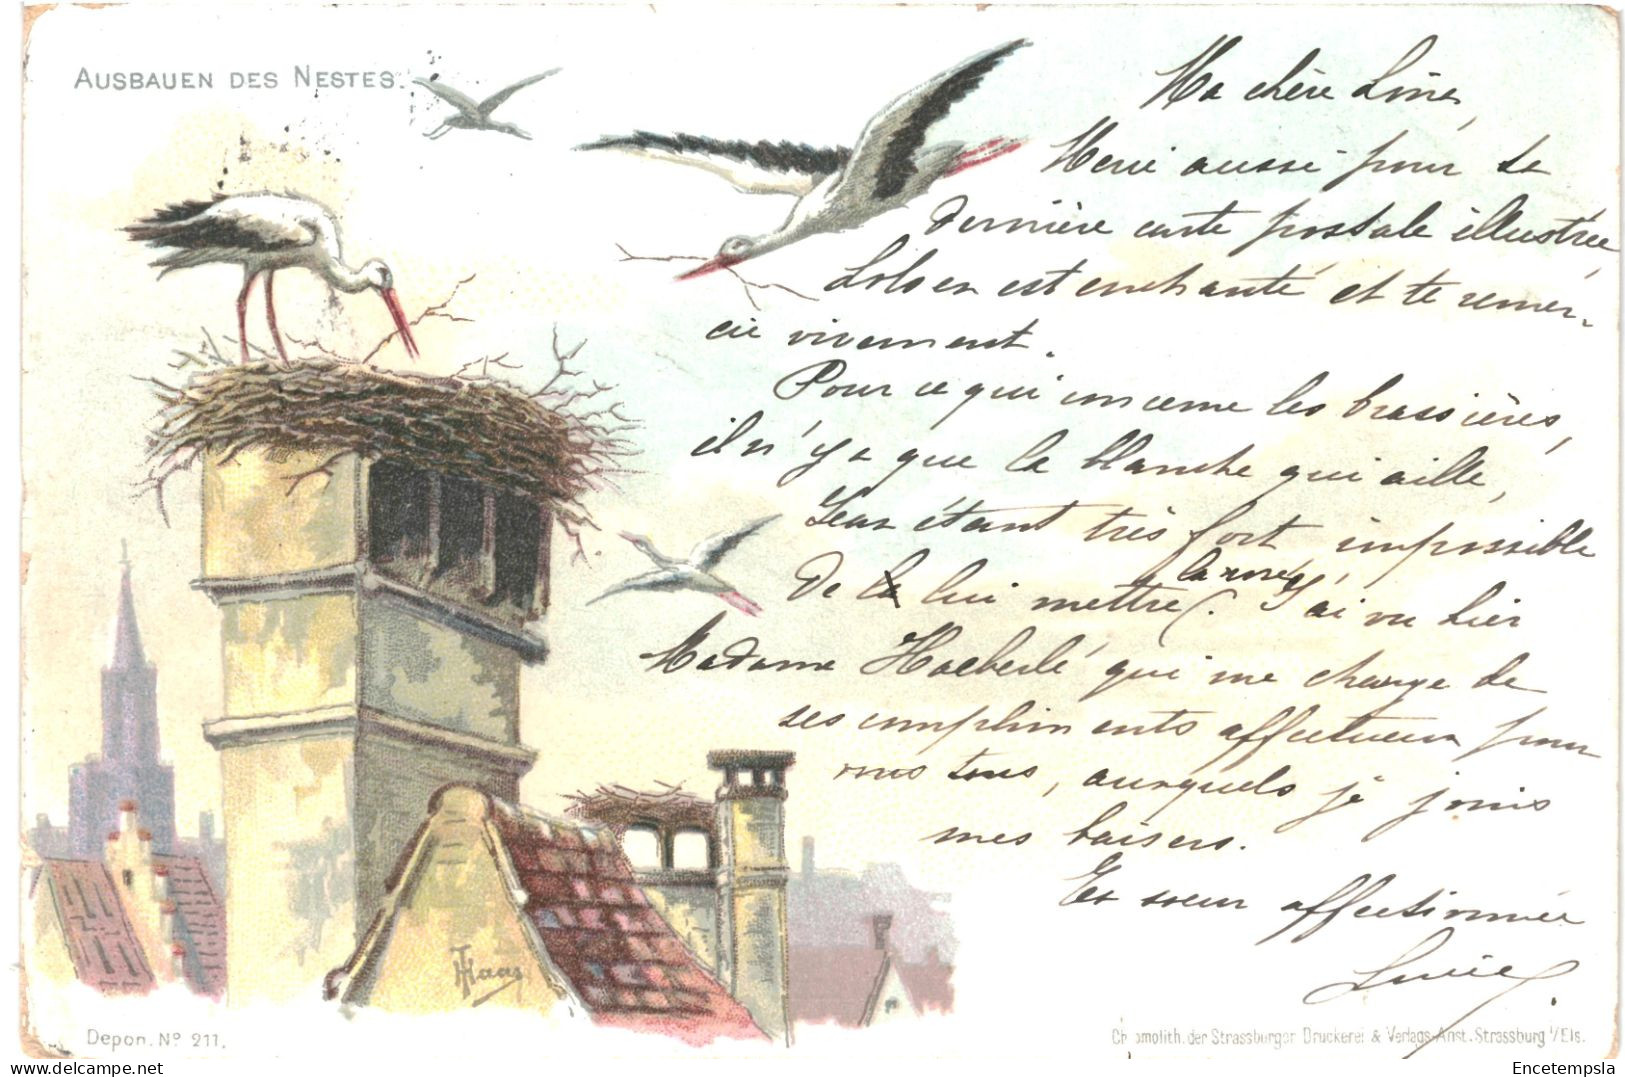 AUSBAUEN DES NESTES.
Ma chère Line,
Merci aussi pour ta
dernière carte postale illustrée
est enchanté et te remer-
cie vivement.
Pour ce qui concerne les brassières,
il n'y a que la blanche qui aille,
Jean étant très fort, impossible
la rose
de la lui mettre. J'ai vu hier
Madame Haeberlé qui me charge de
ses compliments affectueux pour
vous tous, auxquels je joins
mes baisers.
Ta sœur affectionnée
Lucie.
THaas
Depon. No 211.
Chromolith. der Strassburger Druckerei & Verlags-Anst. Strassburg i/Els.
Encetempsla